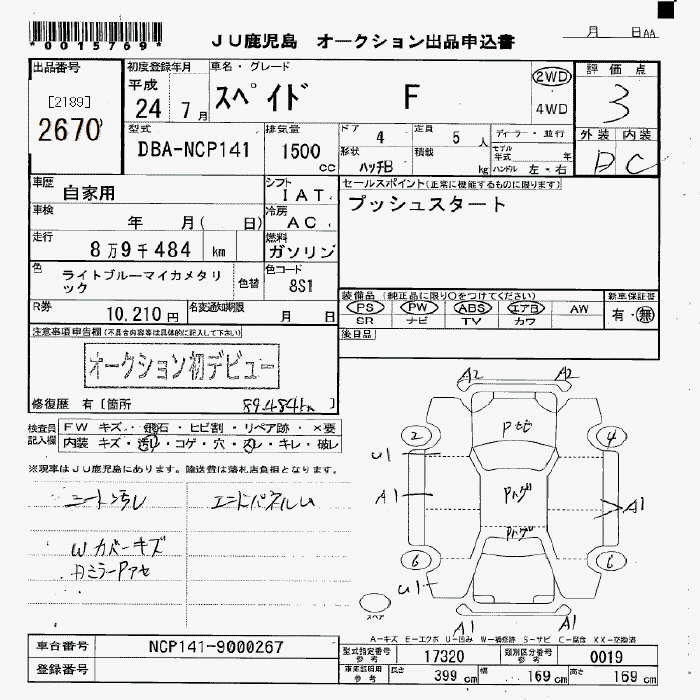 *0015769*
JU鹿児島 オークション出品申込書
月 日AA
出品番号
[2189]
2670
初度登録年月
平成
24 7月
車名・グレード
スペイド F
2WD
4WD
評価点
3
型式
DBA-NCP141
排気量
1500
cc
ドア 4
形状 ハッチB
定員 5 人
積載 kg
ディーラー・並行
モデル年式 年
ハンドル 左・右
外装 内装
D C
車歴
自家用
シフト
IAT
セールスポイント(正常に機能するものに限ります)
プッシュスタート
車検
年 月( 日)
冷房
AC
走行
8万9千484 km
燃料
ガソリン
色
ライトブルーマイカメタリック
色替
色コード
8S1
R券
10,210円
名変通知期限
月 日
装備品 (純正品に限り○をつけてください)
PS PW ABS エアB AW
SR ナビ TV カワ
新車保証書
有・無
後日品
注意事項申告欄(不具合内容等は具体的に記入して下さい)
オークション初デビュー
修復歴 有[箇所 ]
89,484km
検査員記入欄
FW キズ・飛石・ヒビ割・リペア跡・×要
内装 キズ・汚レ・コゲ・穴・スレ・キレ・破レ
※現車はJU鹿児島にあります。輸送費は落札店負担となります。
シート汚レ
エンドパネルU
Wカバーキズ
A2 A2
2 4
U1
A1
A1
6
U1
A1 A1
スペア
A-キズ E-エクボ U-凹み W-補修跡 S-サビ C-腐食 XX-交換済
車台番号
NCP141-9000267
登録番号
型式指定番号
参考
17320
類別区分番号
参考
0019
車庫証明用
参考
長さ 399 cm
幅 169 cm
高さ 169 cm